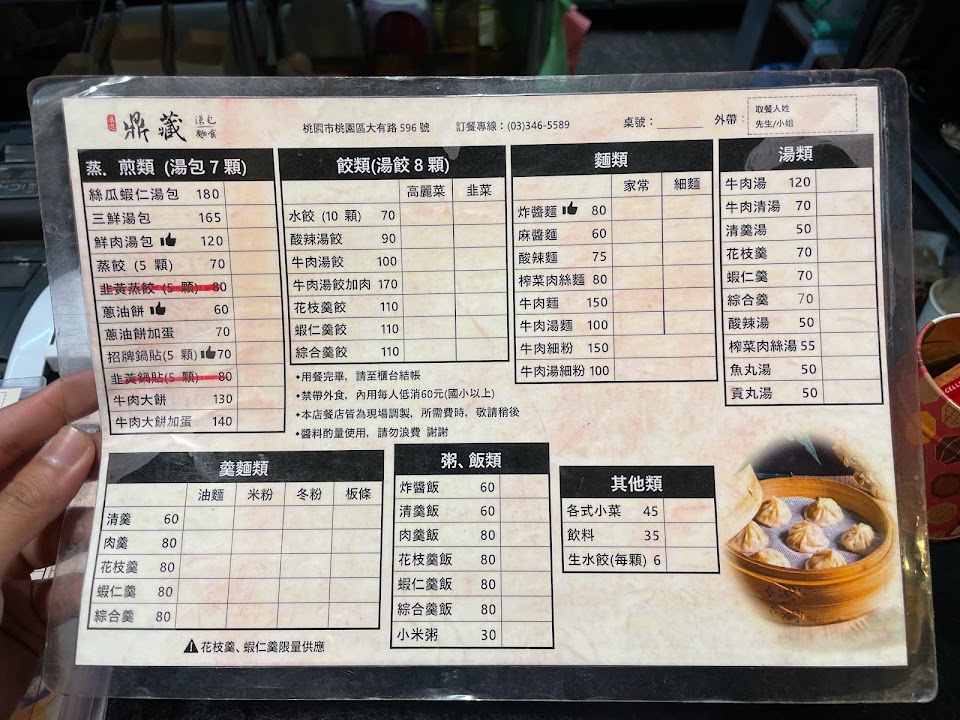 鼎藏 湯包 麵食
桃園市桃園區大有路 596 號 訂餐專線：(03)346-5589 桌號：______ 外帶： 取餐人姓 先生/小姐
蒸．煎類 (湯包 7 顆)
絲瓜蝦仁湯包 180
三鮮湯包 165
鮮肉湯包 120
蒸餃 (5 顆) 70
韭黃蒸餃 (5 顆) 80
蔥油餅 60
蔥油餅加蛋 70
招牌鍋貼(5 顆) 70
韭黃鍋貼(5 顆) 80
牛肉大餅 130
牛肉大餅加蛋 140
餃類(湯餃 8 顆)
高麗菜 韭菜
水餃 (10 顆) 70
酸辣湯餃 90
牛肉湯餃 100
牛肉湯餃加肉 170
花枝羹餃 110
蝦仁羹餃 110
綜合羹餃 110
麵類
家常 細麵
炸醬麵 80
麻醬麵 60
酸辣麵 75
榨菜肉絲麵 80
牛肉麵 150
牛肉湯麵 100
牛肉細粉 150
牛肉湯細粉 100
湯類
牛肉湯 120
牛肉清湯 70
清羹湯 50
花枝羹 70
蝦仁羹 70
綜合羹 70
酸辣湯 50
榨菜肉絲湯 55
魚丸湯 50
貢丸湯 50
◆用餐完畢，請至櫃台結帳
◆禁帶外食，內用每人低消60元(國小以上)
◆本店餐店皆為現場調製，所需費時，敬請稍後
◆醬料酌量使用，請勿浪費 謝謝
羹麵類
油麵 米粉 冬粉 板條
清羹 60
肉羹 80
花枝羹 80
蝦仁羹 80
綜合羹 80
花枝羹、蝦仁羹限量供應
粥、飯類
炸醬飯 60
清羹飯 60
肉羹飯 80
花枝羹飯 80
蝦仁羹飯 80
綜合羹飯 80
小米粥 30
其他類
各式小菜 45
飲料 35
生水餃(每顆) 6